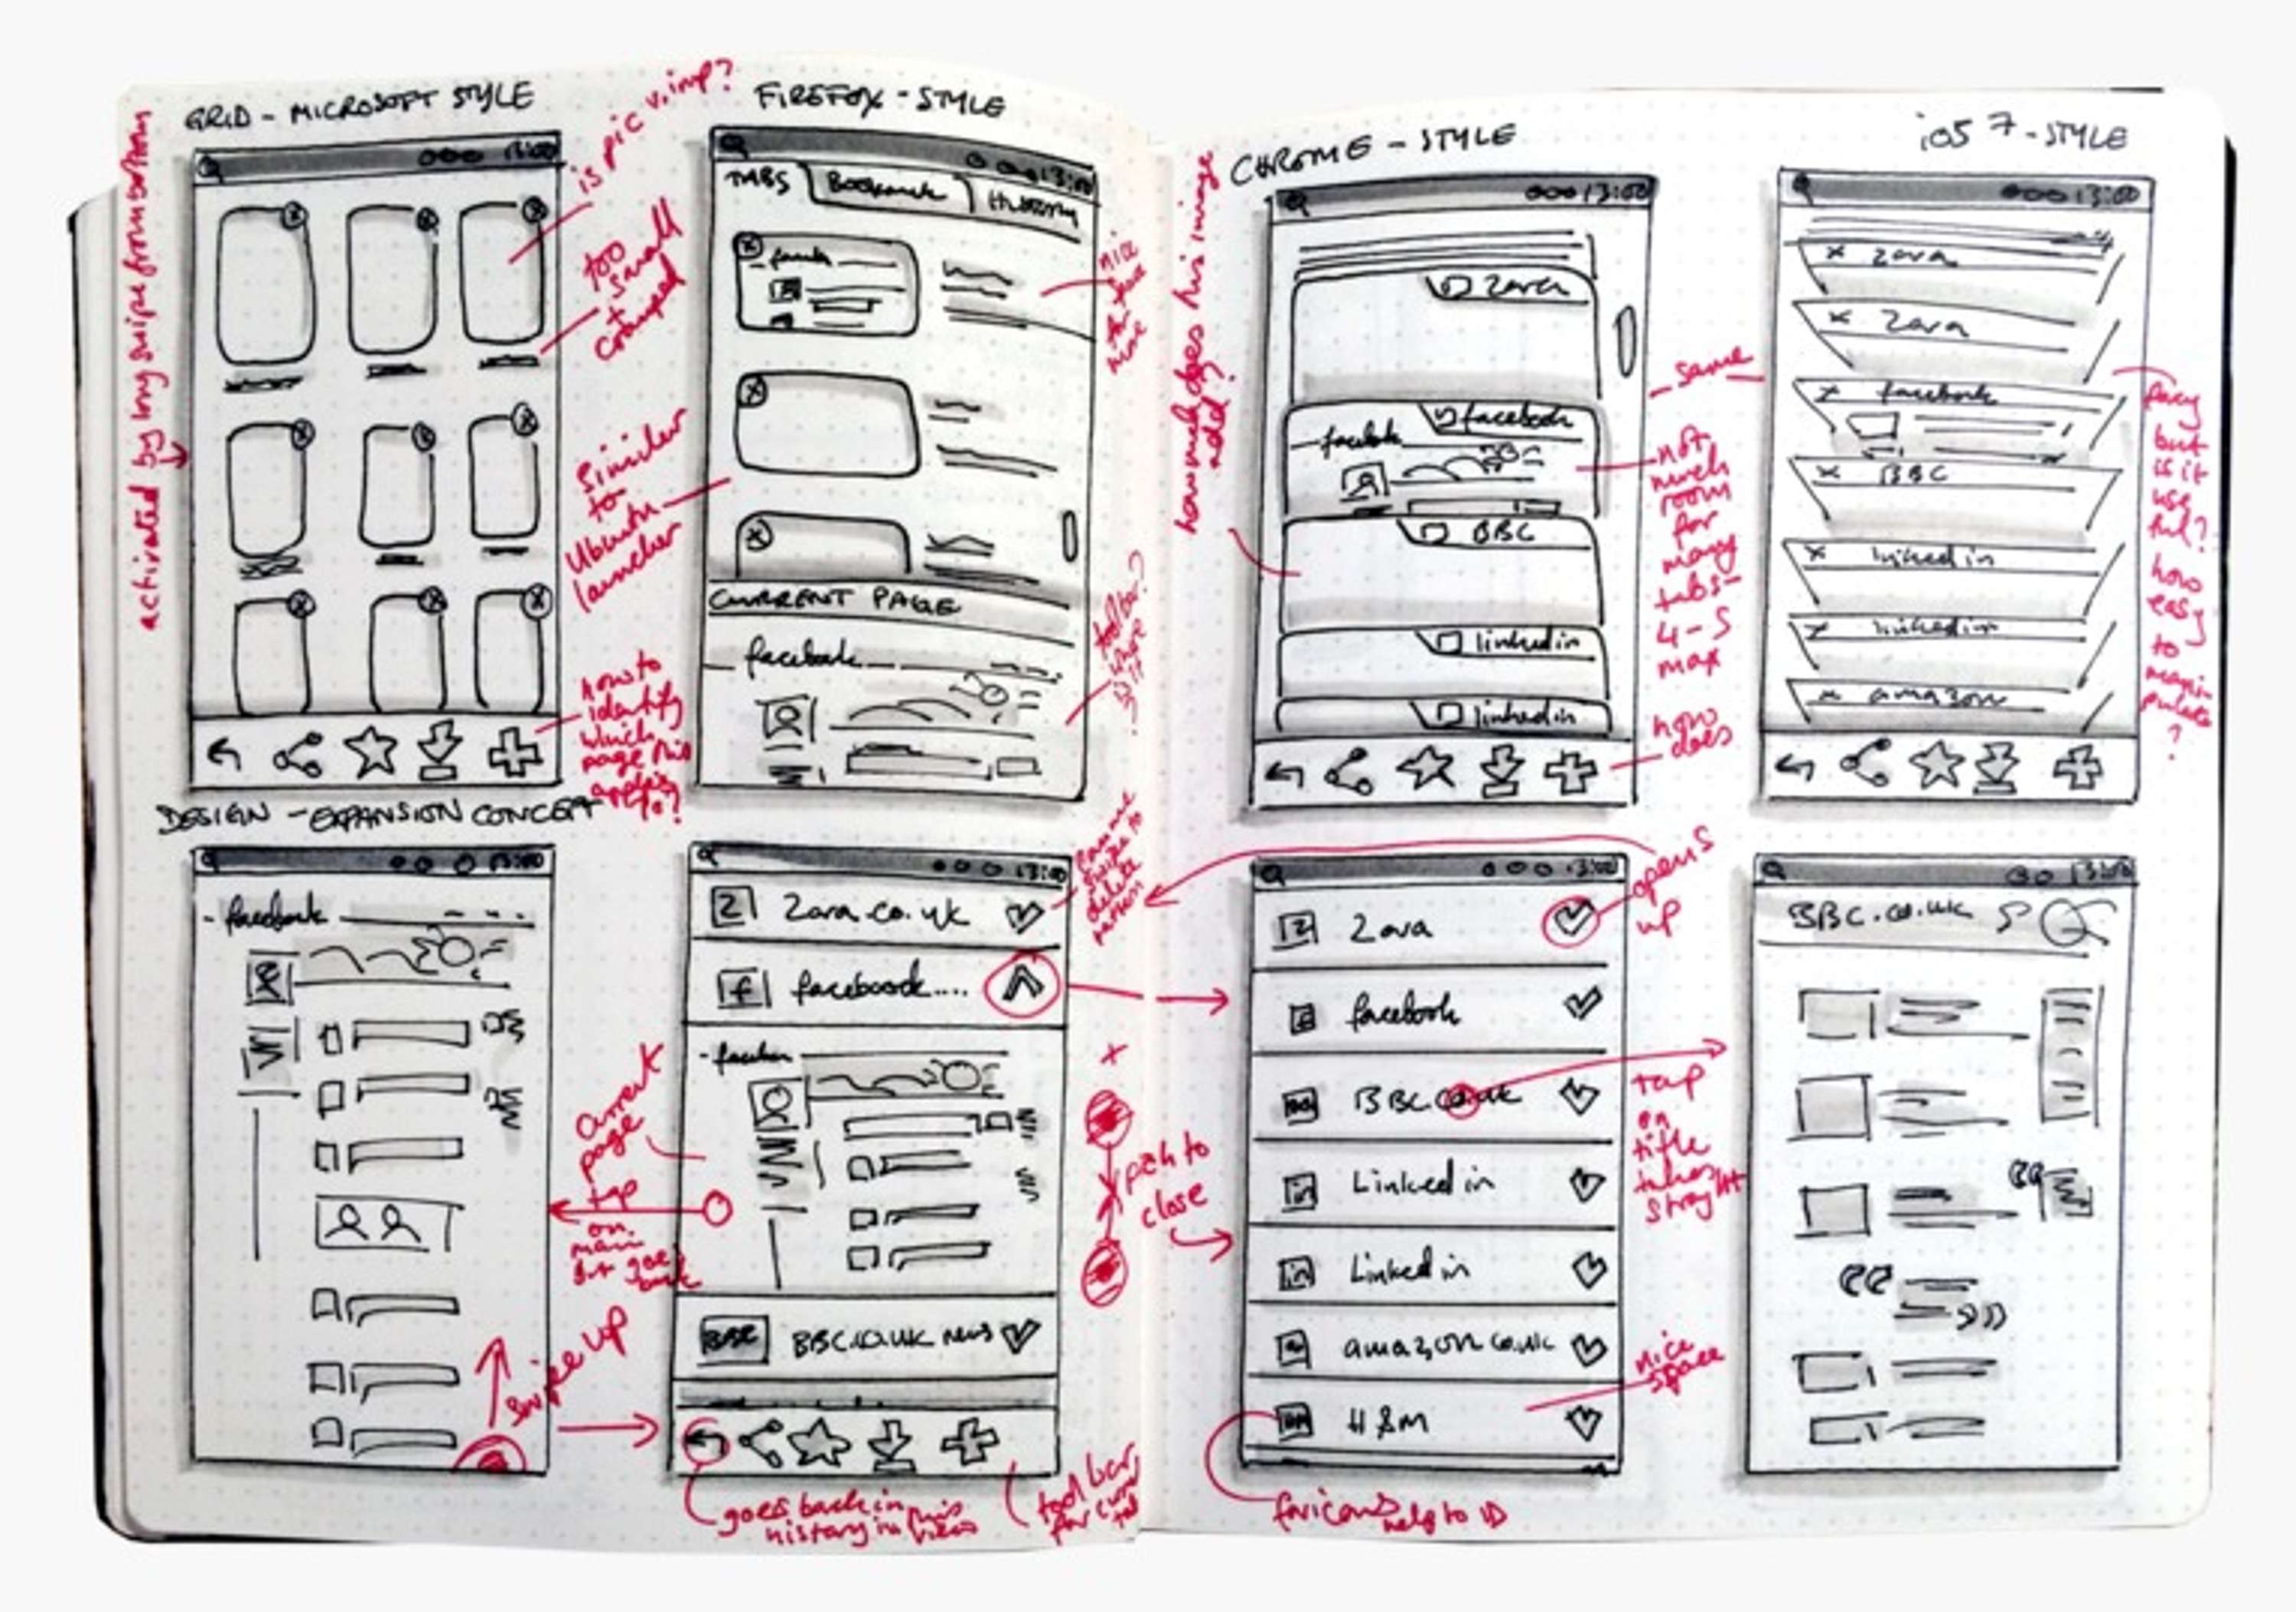 GRID - MICROSOFT STYLE
is pic v.imp?
activated by long swipe from bottom
13:00
too small + cramped
similar to Ubuntu launcher
how to
identify
which
page this
applies
to?
FIREFOX - STYLE
13:00
TABS
Bookmark
History
faceb
nice
to
have
more
CURRENT PAGE
facebook
toolbar?
where
is it
CHROME - STYLE
how much does this image
add?
13:00
Zara
facebook
facebok
BBC
linkedin
linkedin
same
not
much
room
for
many
tabs -
4-5
max
how
does
iOS 7 - STYLE
13:00
x Zara
x Zara
x facebook
x BBC
x linked in
x linkedin
x amazon
fancy
but
is it
use
ful?
how
easy
to
mani-
pulate
?
DESIGN - EXPANSION CONCEPT
13:00
- facebook
swipe up
13:00
Z Zara.co.uk
can use
swipe to
delete
f facebook....
current
page
tap
on
main
but goes
back
BBC BBC.co.uk news
goes back in
history in this
view
tool bar
for curr
tab
+
pinch to
close
13:00
opens
up
Z Zara
facebook
BBC.co.uk
tap
on
title
takes
straight
in Linked in
in Linked in
amazon co.uk
nice
space
H&M
favicons help to ID
13:00
BBC.co.uk